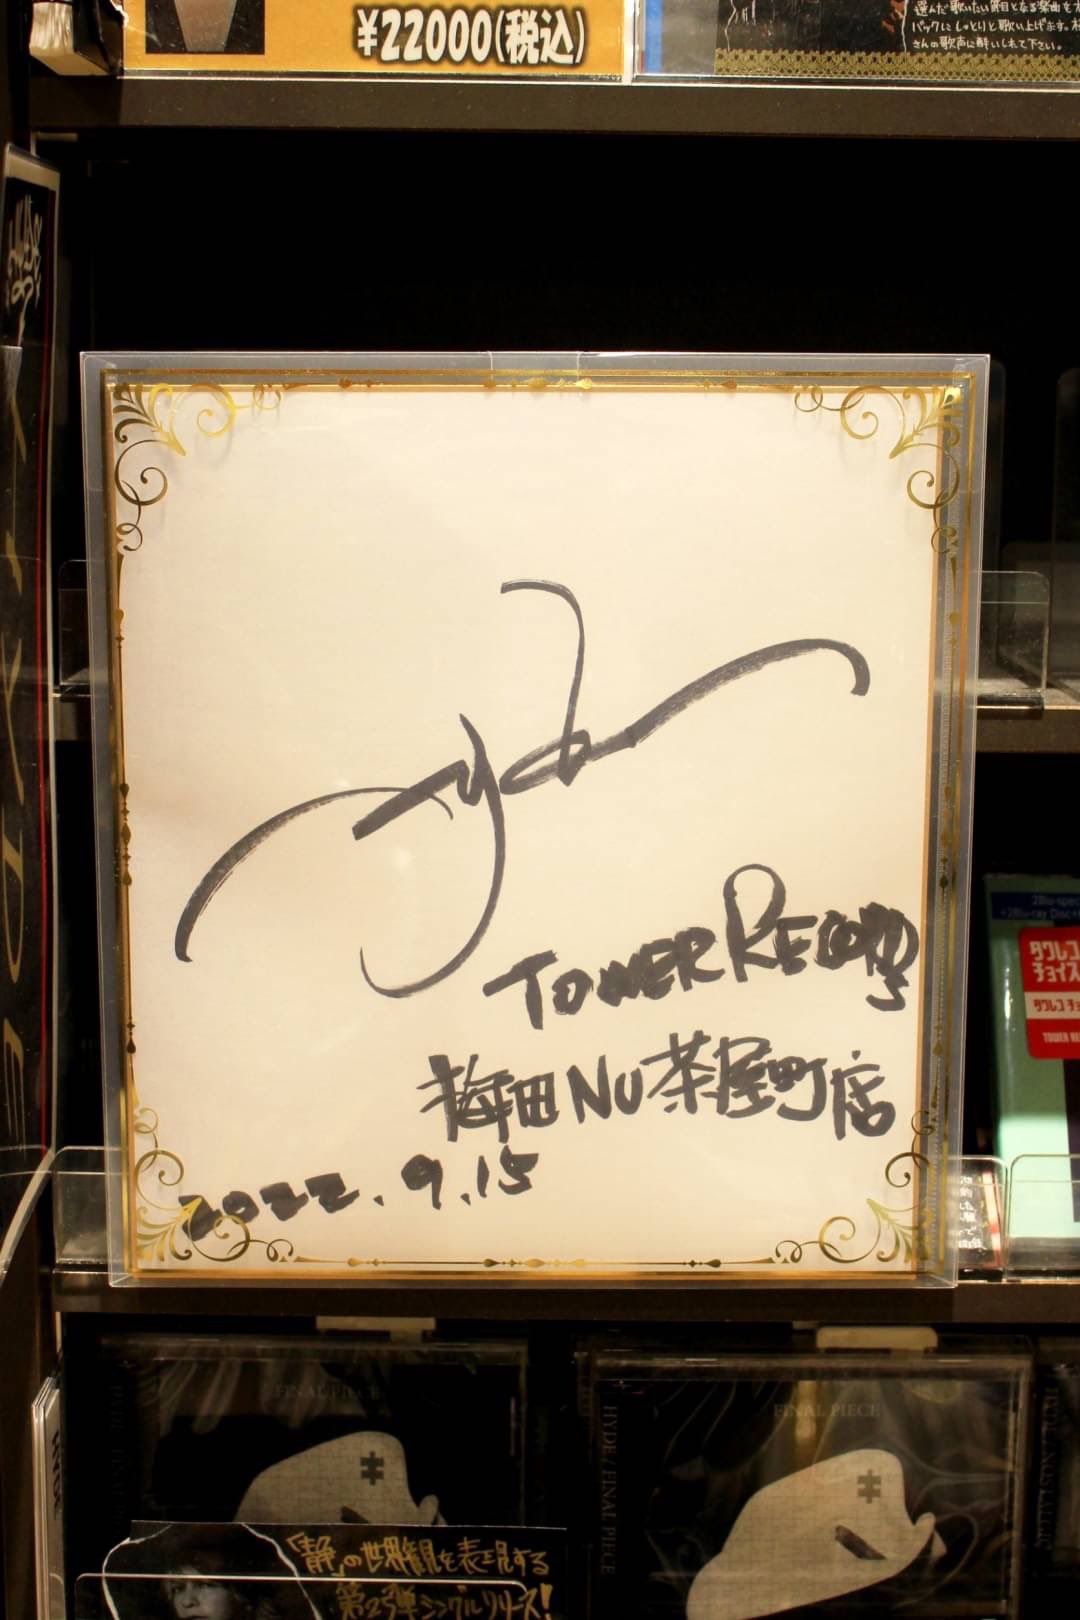 ¥22000(税込)
選んだ歌いたい節目となる楽曲を
バックにしっとりと歌い上げます。
さんの歌声に酔いしれて下さい。
TOWER RECORDS
梅田NU茶屋町店
2022.9.15
タワレコ
チョイス
タワレコ
TOWER RE
FINAL PIECE
HYDE / FINAL PIECE
FINAL PIECE
HYDE / NOSTALGIC
HYDE
「静」の世界観を表現する
第2弾シングルリリース!